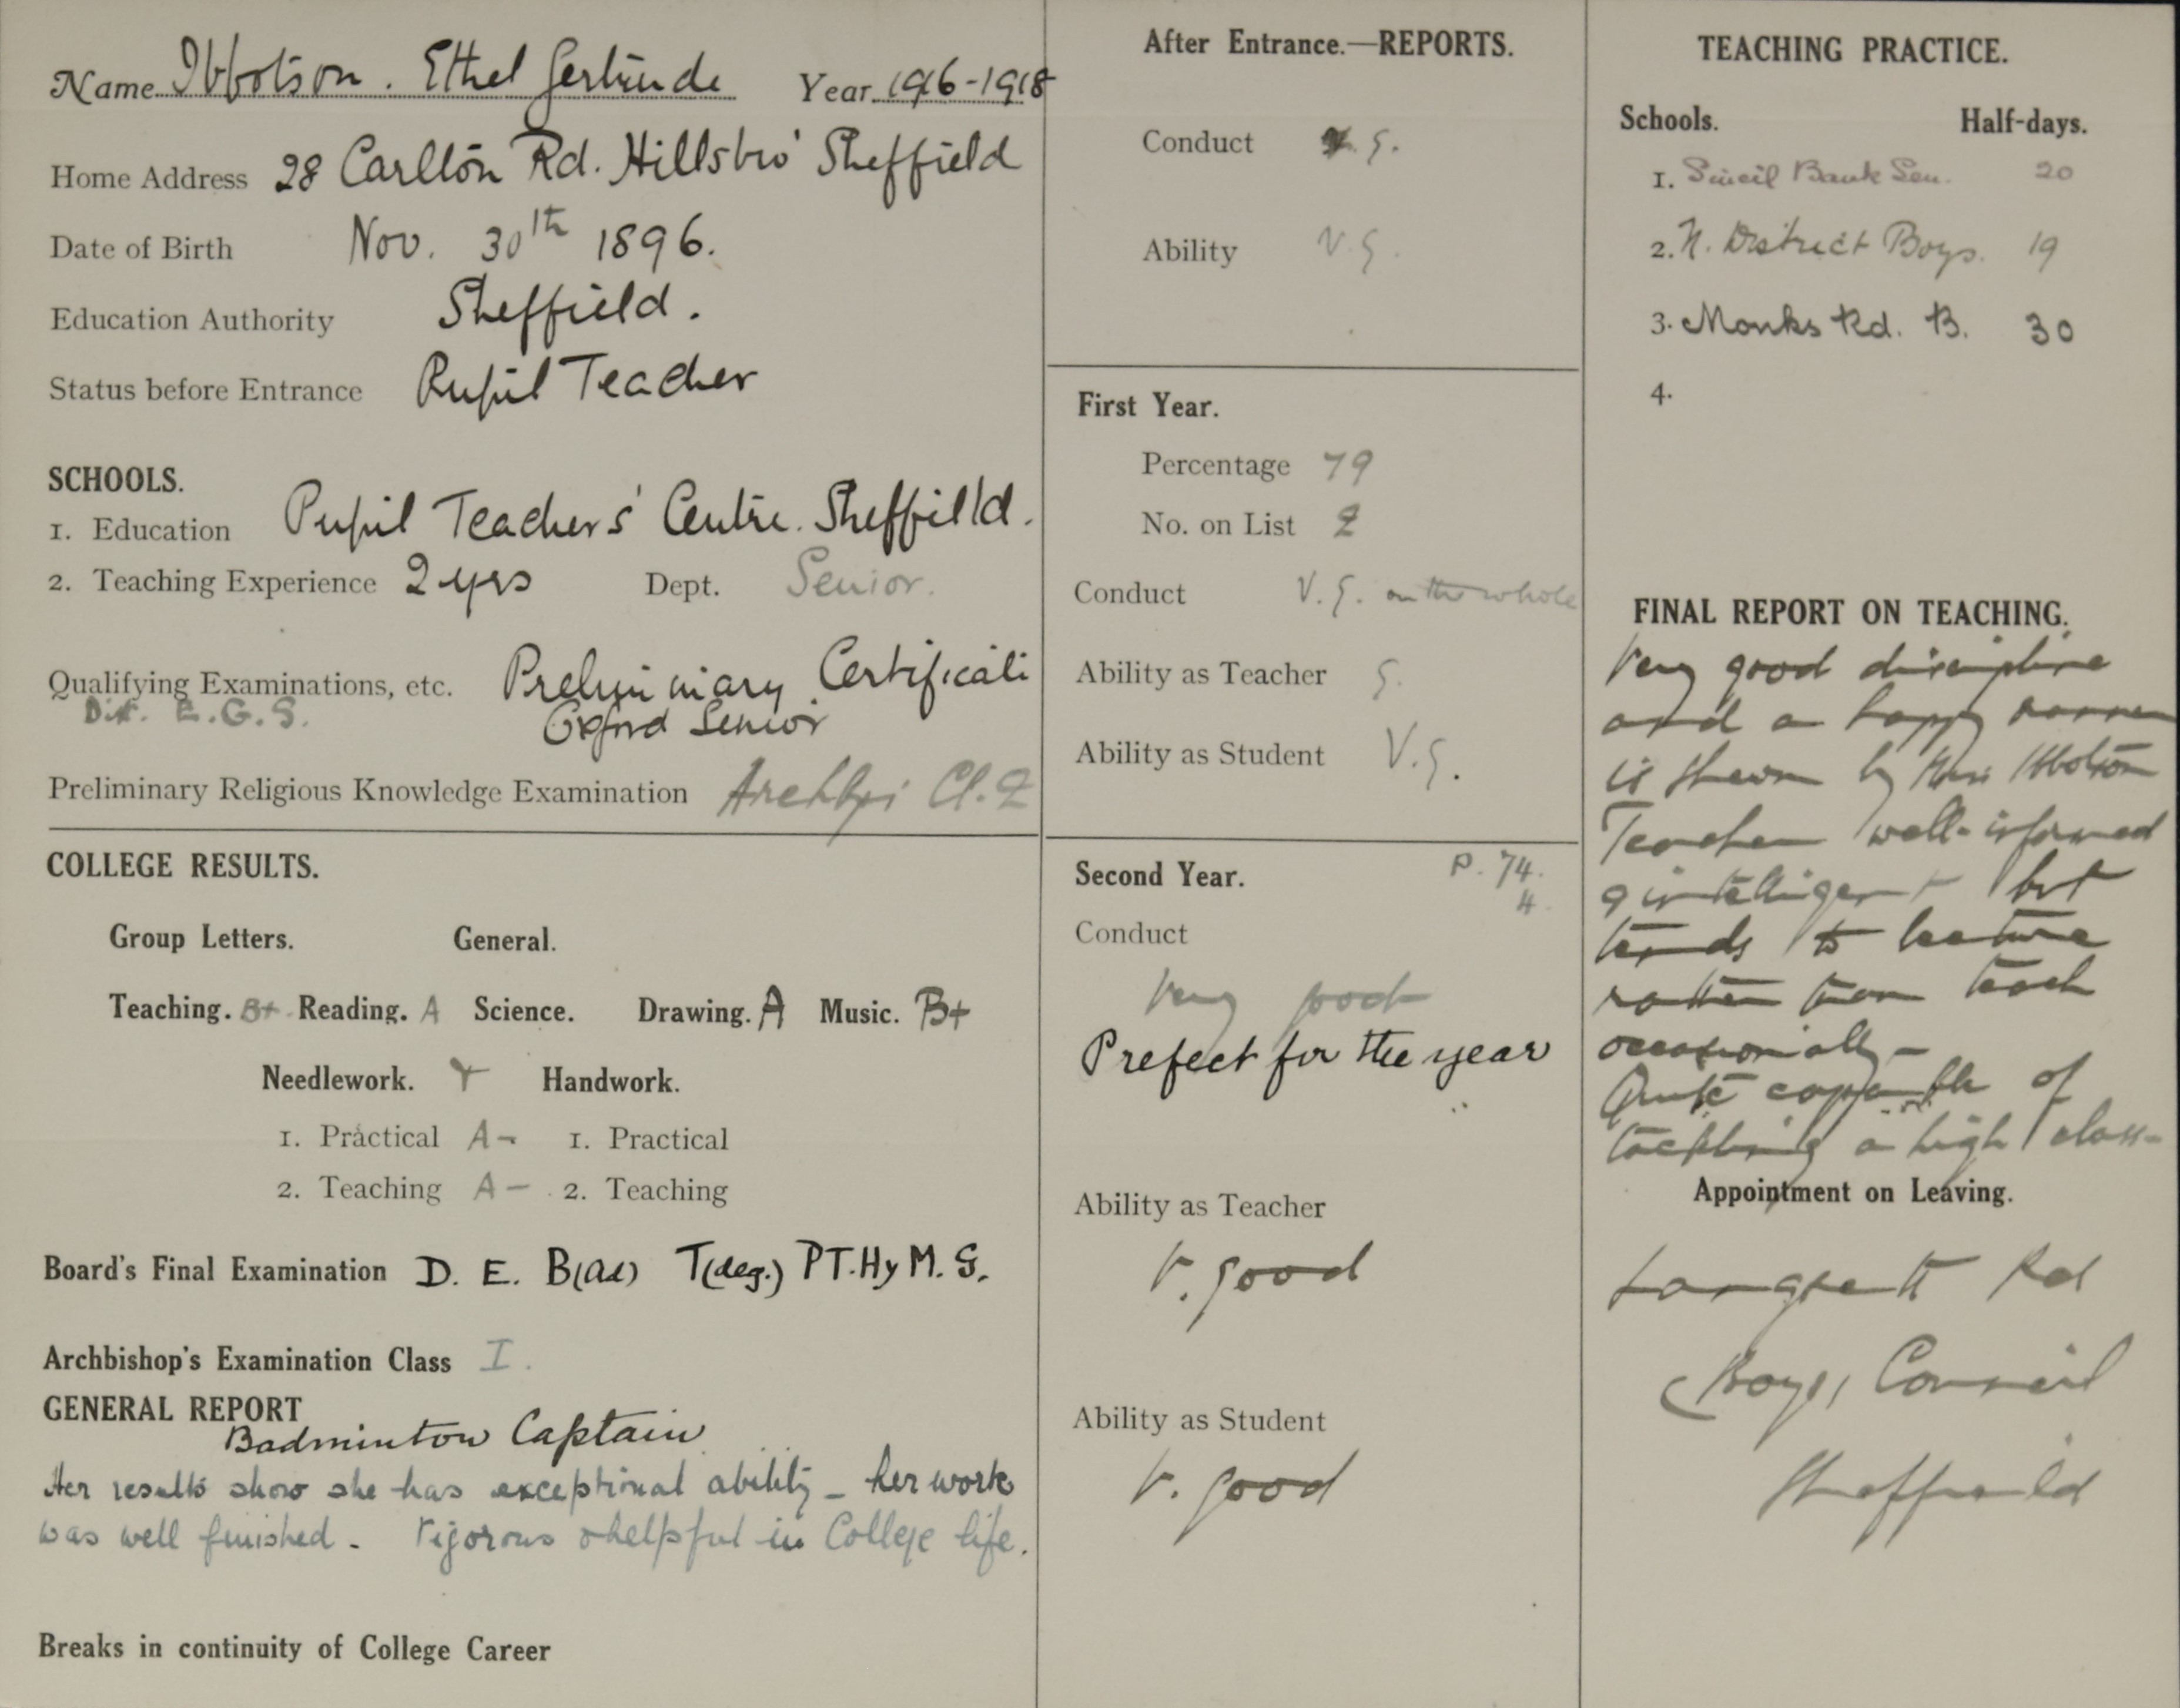 Name Ibbotson. Ethel Gertrude Year 1916-1918
Home Address 28 Carlton Rd. Hillsbro' Sheffield
Date of Birth Nov. 30th 1896.
Education Authority Sheffield.
Status before Entrance Pupil Teacher
SCHOOLS.
1. Education Pupil Teachers' Centre. Sheffield.
2. Teaching Experience 2 yrs Dept. Senior.
Qualifying Examinations, etc. Preliminary Certificate
Dist. E.G.S. Oxford Senior
Preliminary Religious Knowledge Examination Archbps Cl. 2
COLLEGE RESULTS.
Group Letters. General.
Teaching. B+ Reading. A Science. Drawing. A Music. B+
Needlework. Handwork.
1. Practical A- 1. Practical
2. Teaching A- 2. Teaching
Board's Final Examination D. E. B(ad) T(deg.) PT. Hy M. G.
Archbishop's Examination Class I.
GENERAL REPORT
Badminton Captain
Her results show she has exceptional ability - her work
was well finished. Vigorous & helpful in College life.
Breaks in continuity of College Career
After Entrance.—REPORTS.
Conduct G.
Ability V.G.
First Year.
Percentage 79
No. on List 2
Conduct V.G. on the whole
Ability as Teacher G.
Ability as Student V.G.
Second Year. P. 74.
4
Conduct
Very good
Prefect for the year
Ability as Teacher
V. good
Ability as Student
V. good
TEACHING PRACTICE.
Schools. Half-days.
1. Sincil Bank Sen. 20
2. N. District Boys. 19
3. Monks Rd. B. 30
4.
FINAL REPORT ON TEACHING.
Very good discipline
and a happy manner
is shewn by Miss Ibbotson
Teacher well-informed
& intelligent but
tends to lecture
rather than teach
occasionally -
Quite capable of
tackling a high class-
Appointment on Leaving.
Langsett Rd
Boys, Council
Sheffield